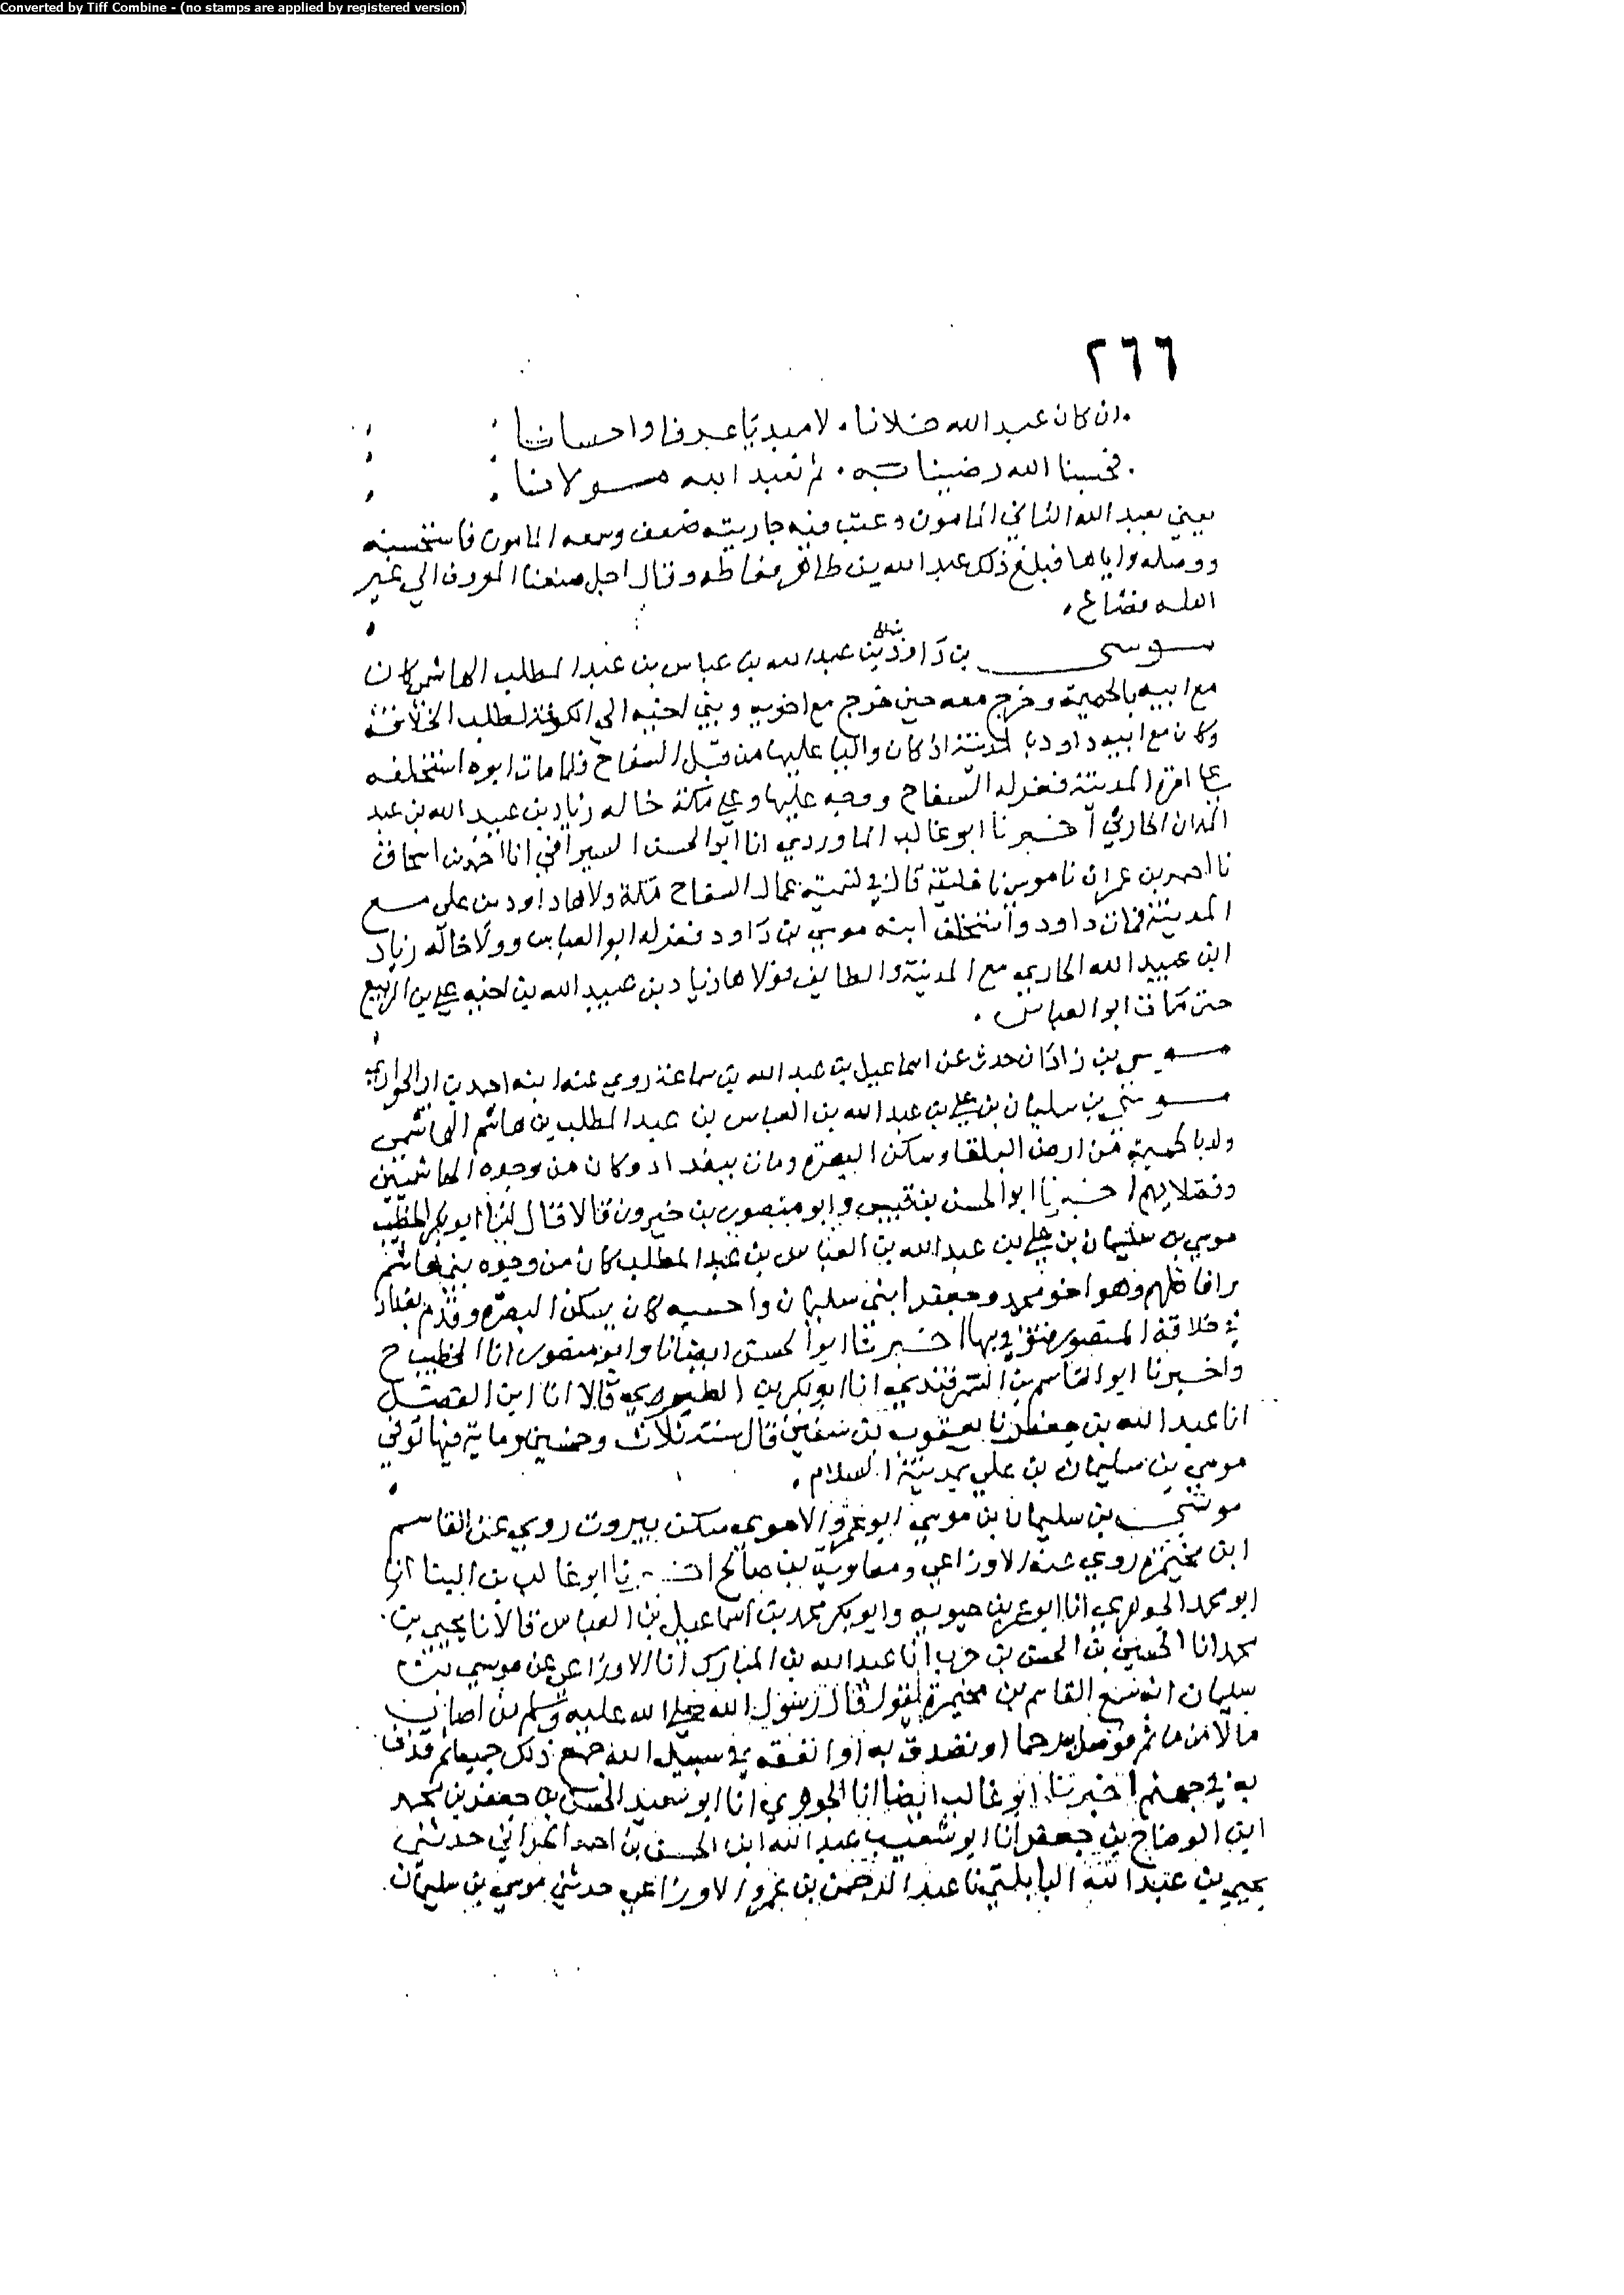 Converted by Tiff Combine - (no stamps are applied by registered version)
٢٦٦
ان كان عبد الله خلانا . لا مبديا عرفا واحسانا
فحسبنا الله رضينا به . ثم لعبد الله مولانا
يعني بعبد الله الثاني المامون وعتب فيه جاريته ضعف وسمعه المامون فاستحسنه
ووصله واياها فبلغ ذلك عبد الله بن طاهر فغاظه وقال اجل صنعنا المعروف الي غير
اهله فضاع .
موسى بن داود بن علي بن عبد الله بن عباس بن عبد المطلب الهاشمي كان
مع ابيه بالحميمة وخرج معه حين خرج مع اخويه وبني اخيه الي الكوفة لطلب الخلافة
وكان مع ابيه داود بالمدينة اذ كان واليا عليها من قبل السفاح فلما مات ابوه استخلفه
علي امرة المدينة فعزله السفاح ووجه عليها وعلي مكة خاله زياد بن عبيد الله بن عبد
المدان الحارثي اخبرنا ابو غالب الماوردي انا ابو الحسن السيرافي انا احمد بن اسحاق
نا احمد بن عمران نا موسي نا خليفة قال في تسمية عمال السفاح مكة ولاها داود بن علي مع
المدينة فمات داود واستخلف ابنه موسي بن داود فعزله ابو العباس وولا خاله زياد
ابن عبيد الله الحارثي مع المدينة والطايف فولاها زياد بن عبيد الله بن اخيه علي بن الربيع
حتي مات ابو العباس .
موسى بن زاذان حدث عن اسماعيل بن عبد الله بن سماعة روي عنه ابنه احمد بن ابي الحواري
موسى بن سليمان بن علي بن عبد الله بن العباس بن عبد المطلب بن هاشم الهاشمي
ولد بالحميمة من ارض البلقا وسكن البصرة ومات ببغداد وكان من وجوه الهاشميين
وفضلايهم اخبرنا ابو الحسن بن قبيس وابو منصور بن خيرون قالا قال لنا ابو بكر الخطيب
موسي بن سليمان بن علي بن عبد الله بن العباس بن عبد المطلب كان من وجوه بني هاشم
وافاضلهم وهو اخو محمد وجعفر ابني سليمان واحسبه كان يسكن البصرة وقدم بغداد
في خلافة المنصور فتوفي بها اخبرنا ابو الحسن ايضا نا وابو منصور انا الخطيب ح
واخبرنا ابو القاسم بن السمرقندي انا ابو بكر بن الطبري قالا انا ابن الفضل
انا عبد الله بن جعفر نا يعقوب بن سفين قال سنة ثلاث وخمسين وماية فيها توفي
موسي بن سليمان بن علي بمدينة السلام .
موسى بن سليمان بن موسي ابو عمرو الاموي سكن بيروت روي عن القاسم
ابن مخيمرة روي عنه الاوزاعي ومعاوية بن صالح اخبرنا ابو غالب بن البنا انا
ابو محمد الجوهري انا ابو عمر بن حيويه وابو بكر محمد بن اسماعيل بن العباس قالا نا يحيي بن
محمد انا الحسين بن الحسن بن حرب انا عبد الله بن المبارك انا الاوزاعي عن موسي بن
سليمان انه سمع القاسم بن مخيمرة يقول قال رسول الله صلي الله عليه وسلم من اصاب
مالا من ماثم فوصل به رحما او تصدق به او انفقه في سبيل الله جمع ذلك جميعا ثم قذف
به في جهنم اخبرنا ابو غالب ايضا انا الجوهري انا ابو سعيد الحسن بن جعفر بن محمد
ابن الوضاح بن جعفر انا ابو شعيب عبد الله ابن الحسن بن احمد الحراني حدثني
يحيي بن عبد الله البابلتي نا عبد الرحمن بن عمرو الاوزاعي حدثني موسي بن سليمان